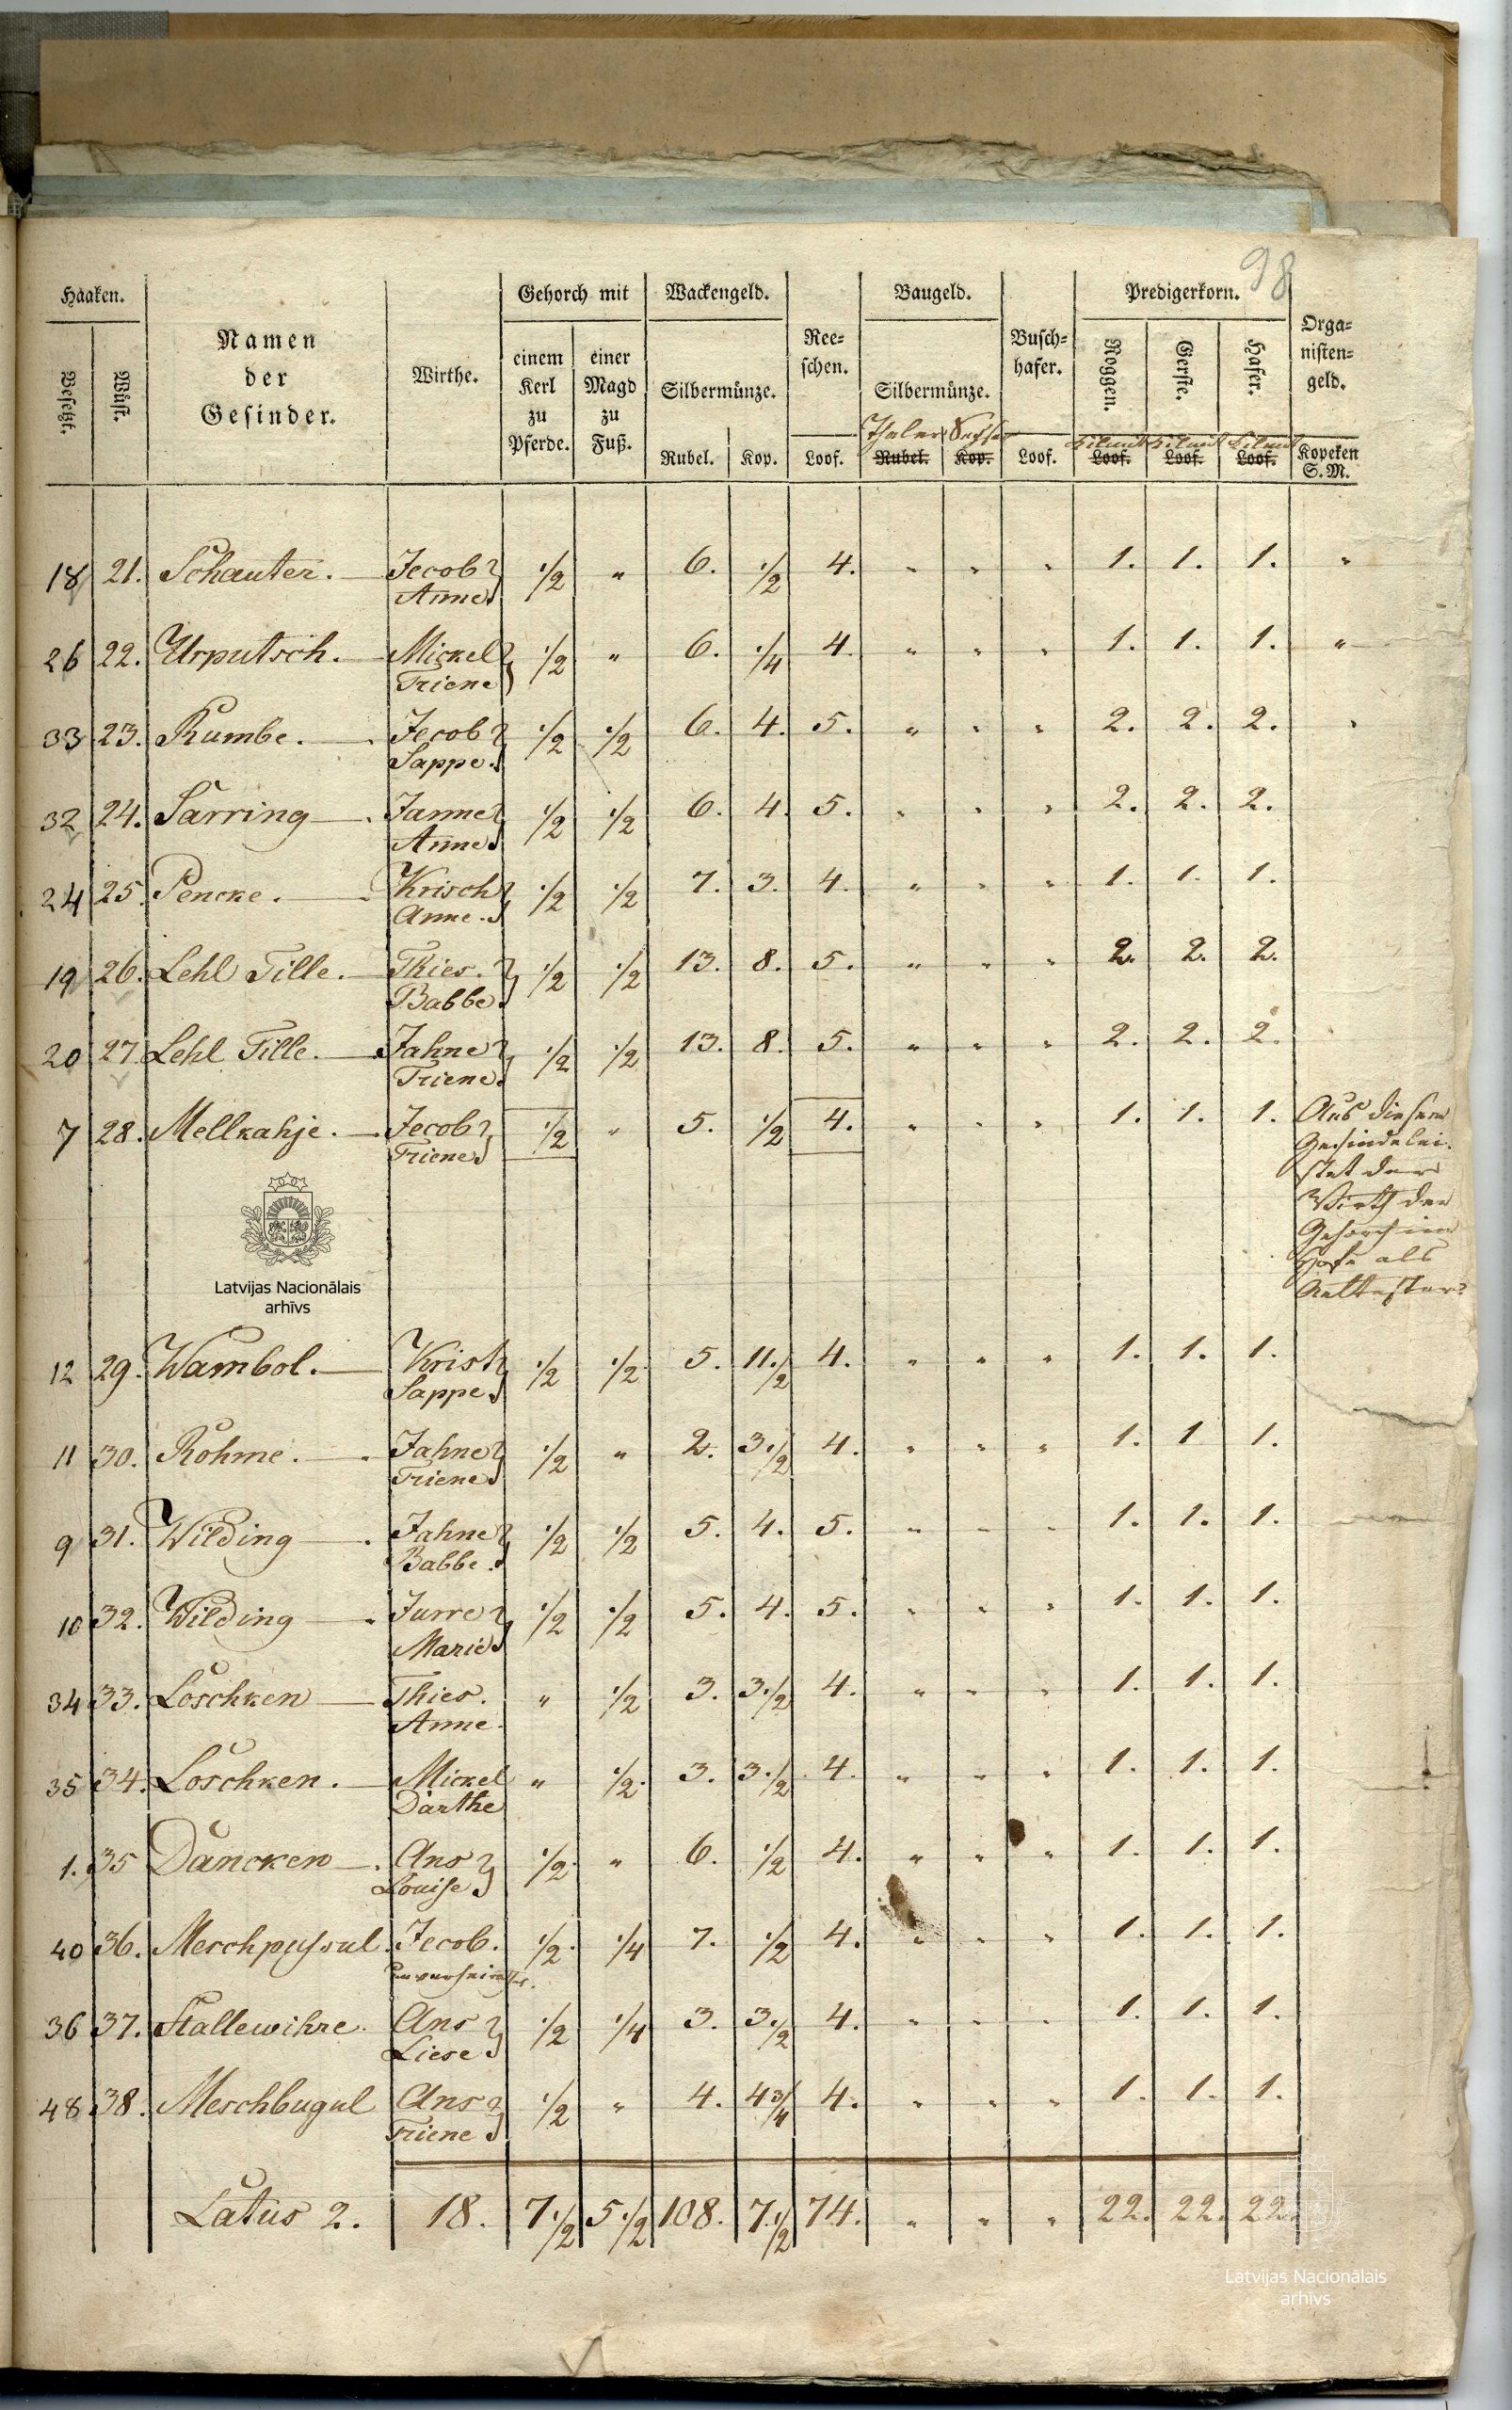 98
Haaken. Gehorch mit Wackengeld. Baugeld. Predigerkorn.
Besetzt. Wüst. Namen der Gesinder. Wirthe. einem Kerl zu Pferde. einer Magd zu Fuß. Silbermünze. Reeschen. Silbermünze. Buschhafer. Roggen. Gerste. Hafer. Organistengeld.
Thaler
Rubel. Kop. Loof. Rubel. Kop. Loof. Loof. Loof. Loof. Kopeken S. M.
18 21. Schauter. Jecob ½ " 6. ½ 4. " " " 1. 1. 1. "
Anne
26 22. Urputsch. Mickel ½ " 6. ¼ 4. " " " 1. 1. 1. "
Triene
33 23. Rumbe. Jecob ½ ½ 6. 4. 5. " " " 2. 2. 2. "
Sappe.
32 24. Sarring Janne ½ ½ 6. 4. 5. " " " 2. 2. 2.
Anne
24 25. Pencke. Krisch ½ ½ 7. 3. 4. " " " 1. 1. 1.
Anne.
19 26. Lehl Tille. Thies. ½ ½ 13. 8. 5. " " " 2. 2. 2.
Babbe
20 27. Lehl Tille. Jahne ½ ½ 13. 8. 5. " " " 2. 2. 2.
Triene
7 28. Mellkahje. Jecob ½ " 5. ½ 4. " " " 1. 1. 1. Aus diesem
Triene Gesinde lei-
stet der
Wirth den
Gehorch im
Hofe als
Aeltester
Latvijas Nacionālais
arhīvs
12 29. Wambol. Krist ½ ½ 5. 11.½ 4. " " " 1. 1. 1.
Sappe
11 30. Rohme. Jahne ½ " 2. 3.½ 4. " " " 1. 1 1.
Triene
9 31. Wilding Jahne ½ ½ 5. 4. 5. " " " 1. 1. 1.
Babbe.
10 32. Wilding Jurre ½ ½ 5. 4. 5. " " " 1. 1. 1.
Marie
34 33. Loschken Thies. " ½ 3. 3.½ 4. " " " 1. 1. 1.
Anne.
35 34. Loschken. Mickel " ½ 3. 3.½ 4. " " " 1. 1. 1.
Darthe
1. 35 Dancken Ans ½ " 6. ½ 4. " " " 1. 1. 1.
Louise
40 36. Meschpussul. Jecob. ½ ¼ 7. ½ 4. " " " 1. 1. 1.
unverheirathet.
36 37. Stallewihre. Ans ½ ¼ 3. 3.½ 4. " " " 1. 1. 1.
Liese
48 38. Meschbugul Ans ½ " 4. 4¾ 4. " " " 1. 1. 1.
Triene
Latus 2. 18. 7.½ 5.½ 108. 7.½ 74. " " " 22. 22. 22.
Latvijas Nacionālais
arhīvs